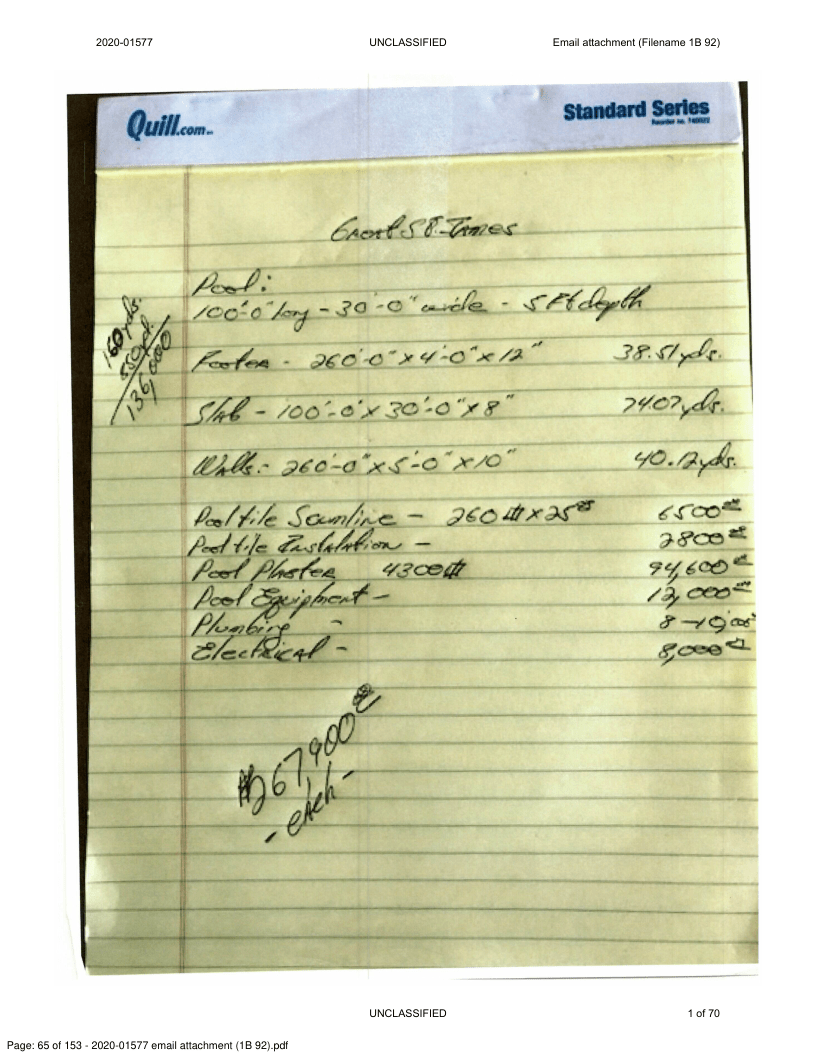 2020-01577 UNCLASSIFIED Email attachment (Filename 1B 92)
Quill.com
Standard Series
Reorder no. 740022
Great St. James
Pool:
100'-0" long - 30'-0" wide - 5 Ft depth
160 yds.
850 yd.
136,000
Footer - 260'-0" x 4'-0" x 12" 38.51 yds.
Slab - 100'-0 x 30'-0" x 8" 74.07 yds.
Walls:- 260'-0" x 5'-0" x 10" 40.12 yds.
Pool tile Scumline - 260 x 25⁰⁰ 6500⁰⁰
Pool tile Installation - 2800⁰⁰
Pool Plaster 4300 94,600⁰⁰
Pool Equipment - 12,000⁰⁰
Plumbing - 8-10,000
Electrical - 8,000⁰⁰
$267,900⁰⁰
- each -
UNCLASSIFIED 1 of 70
Page: 65 of 153 - 2020-01577 email attachment (1B 92).pdf